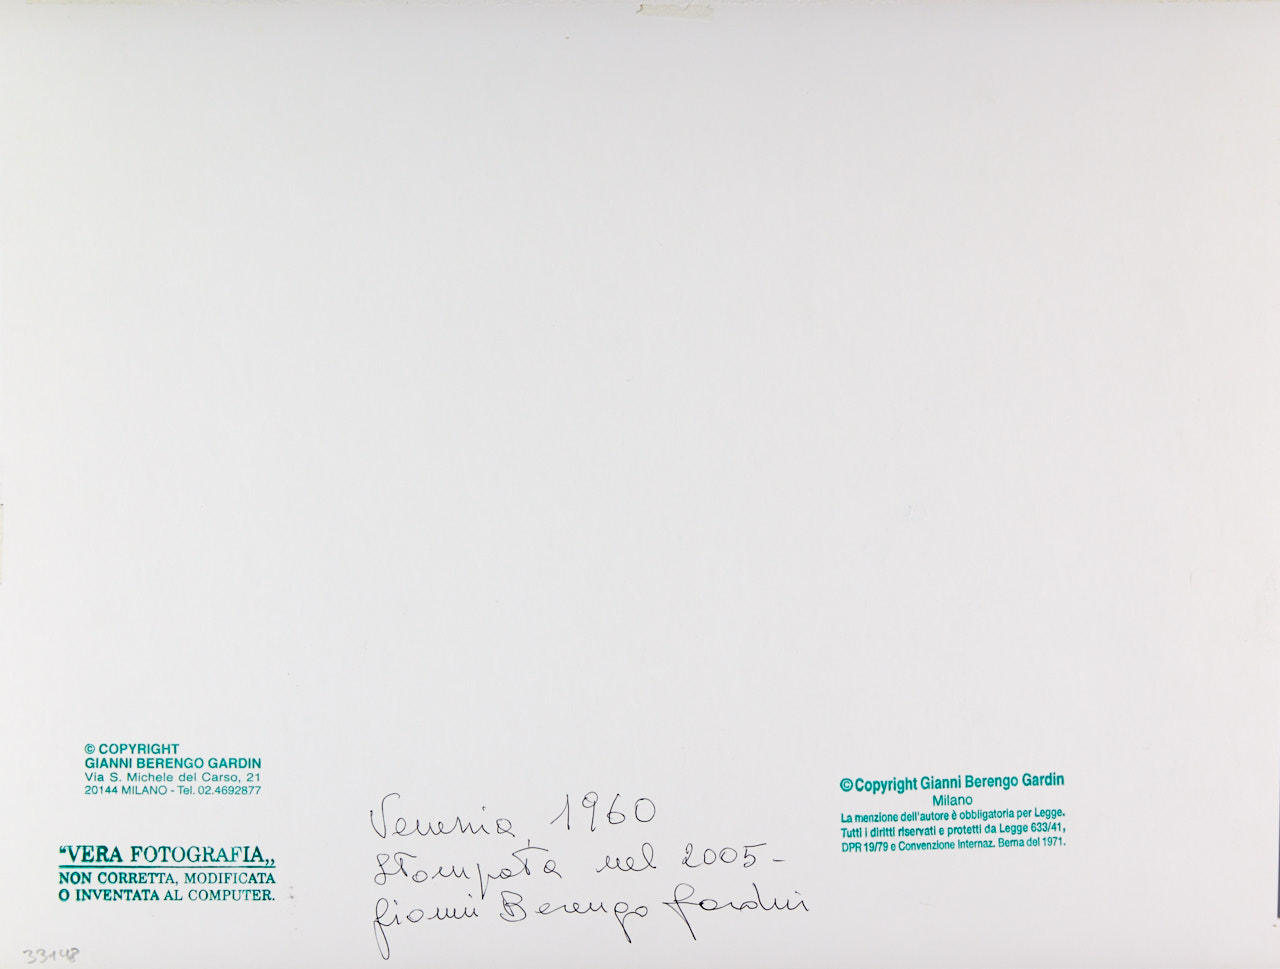 © COPYRIGHT
GIANNI BERENGO GARDIN
Via S. Michele del Carso, 21
20144 MILANO - Tel. 02.4692877
"VERA FOTOGRAFIA„
NON CORRETTA, MODIFICATA
O INVENTATA AL COMPUTER.
Venezia, 1960
Stampata nel 2005-
Gianni Berengo Gardin
©Copyright Gianni Berengo Gardin
Milano
La menzione dell'autore è obbligatoria per Legge.
Tutti i diritti riservati e protetti da Legge 633/41,
DPR 19/79 e Convenzione Internaz. Berna del 1971.
33148